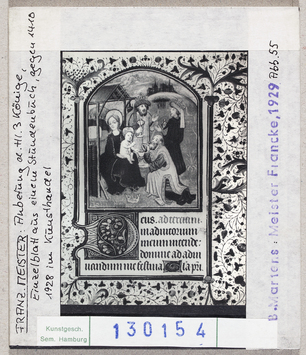 FRANZ. MEISTER: Anbetung d. Hl. 3 Könige,
Einzelblatt aus einem Stundenbuch, gegen 1410
1928 im Kunsthandel
Deus in adiutorium
meum intende.
domine ad adiu
uandum me festina
Gla pri
B. Martens: Meister Francke, 1929
Abb 55
Kunstgesch.
Sem. Hamburg
130154